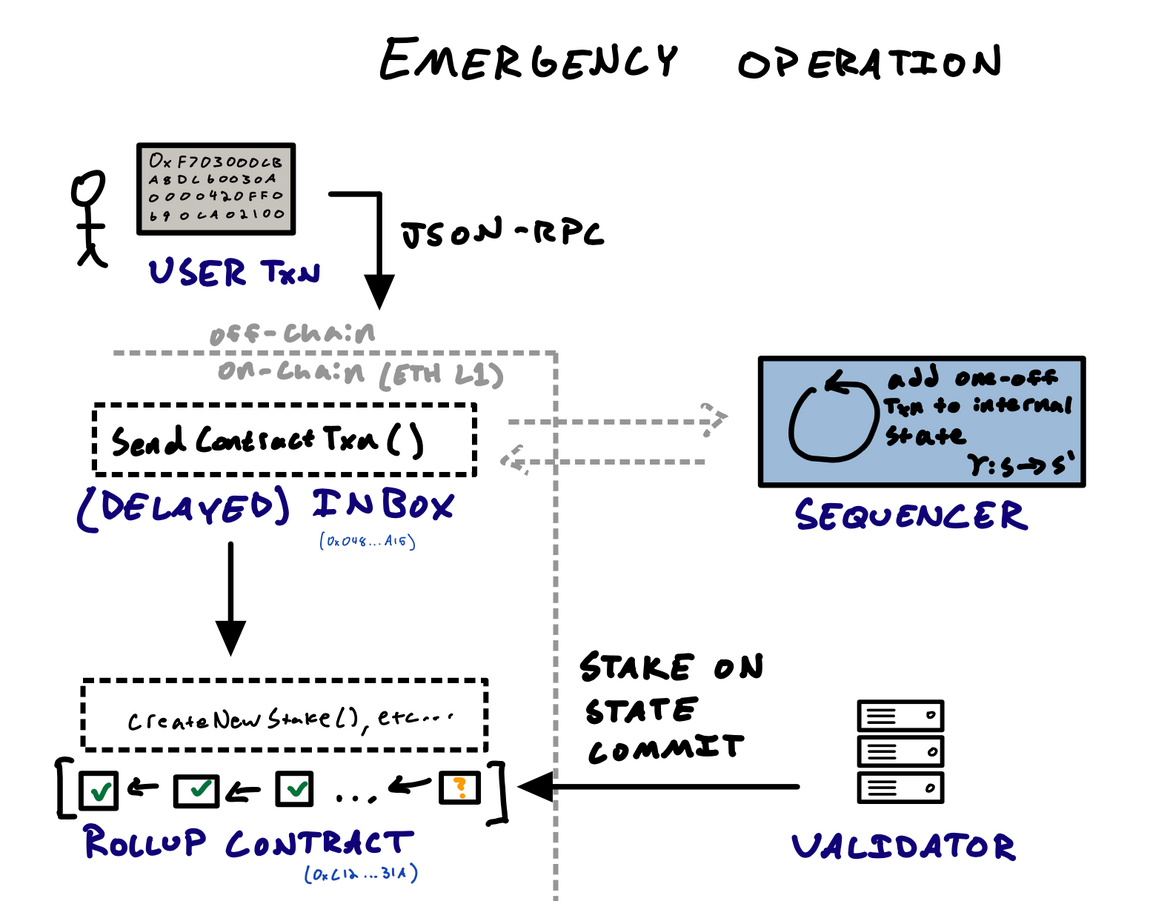 EMERGENCY OPERATION
0xF703000CB
A8DC60030A
0000420FF0
690CA02100
USER TXN
JSON-RPC
OFF-Chain
ON-Chain (ETH L1)
SendContractTxn()
(DELAYED) INBOX
(0x048...A15)
add one-off
Txn to internal
state
γ:s→s'
SEQUENCER
createNewStake(), etc...
...
?
ROLLUP CONTRACT
(0xC12...31A)
STAKE ON
STATE
COMMIT
VALIDATOR